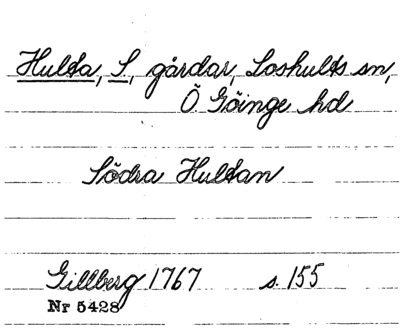 Hulta, S., gårdar, Loshults sn,
Ö. Göinge hd
Södra Hultan
Gillberg 1767 s. 155
Nr 5428